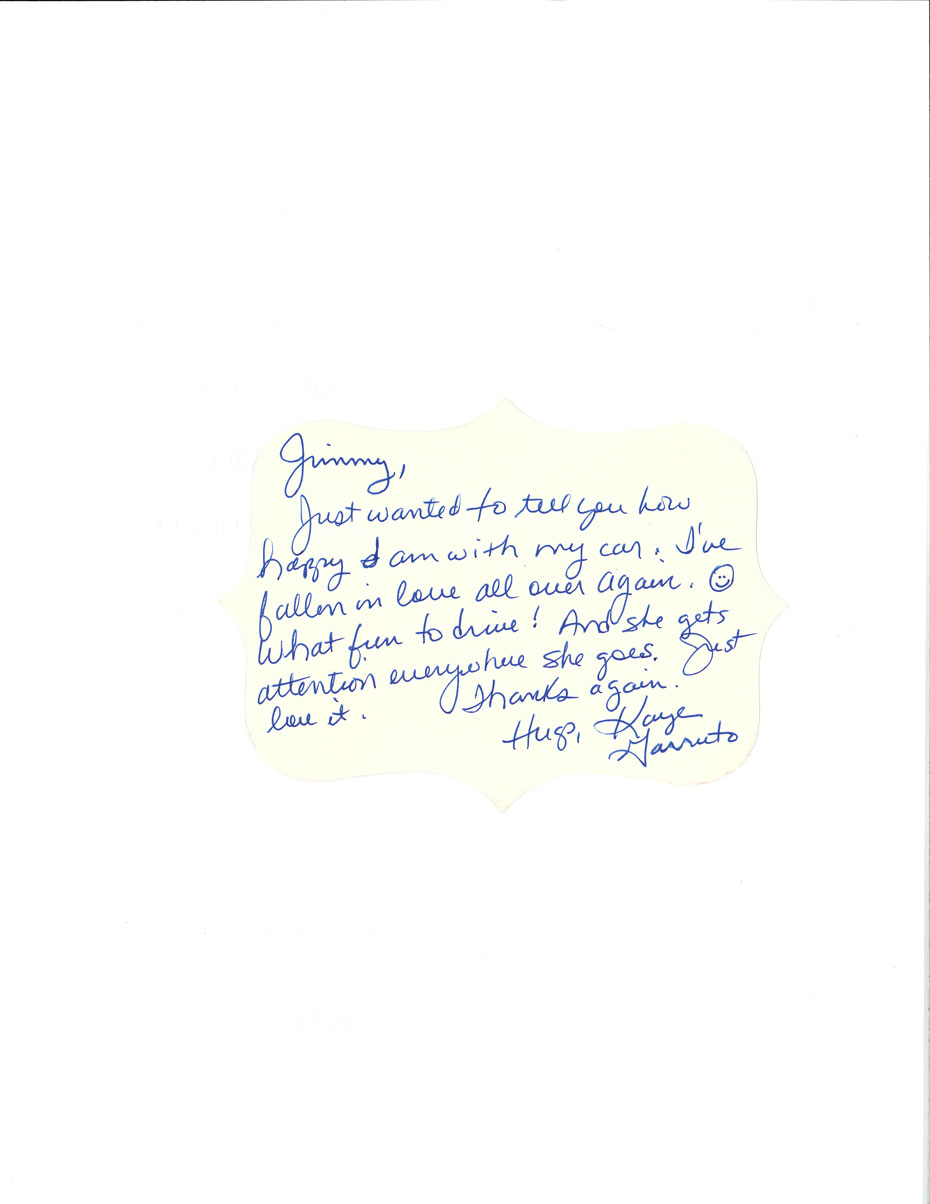 Jimmy,
Just wanted to tell you how
happy I am with my car. I've
fallen in love all over again. ☺
What fun to drive! And she gets
attention everywhere she goes. Just
love it. Thanks again.
Hugs, Kaye
Garruto